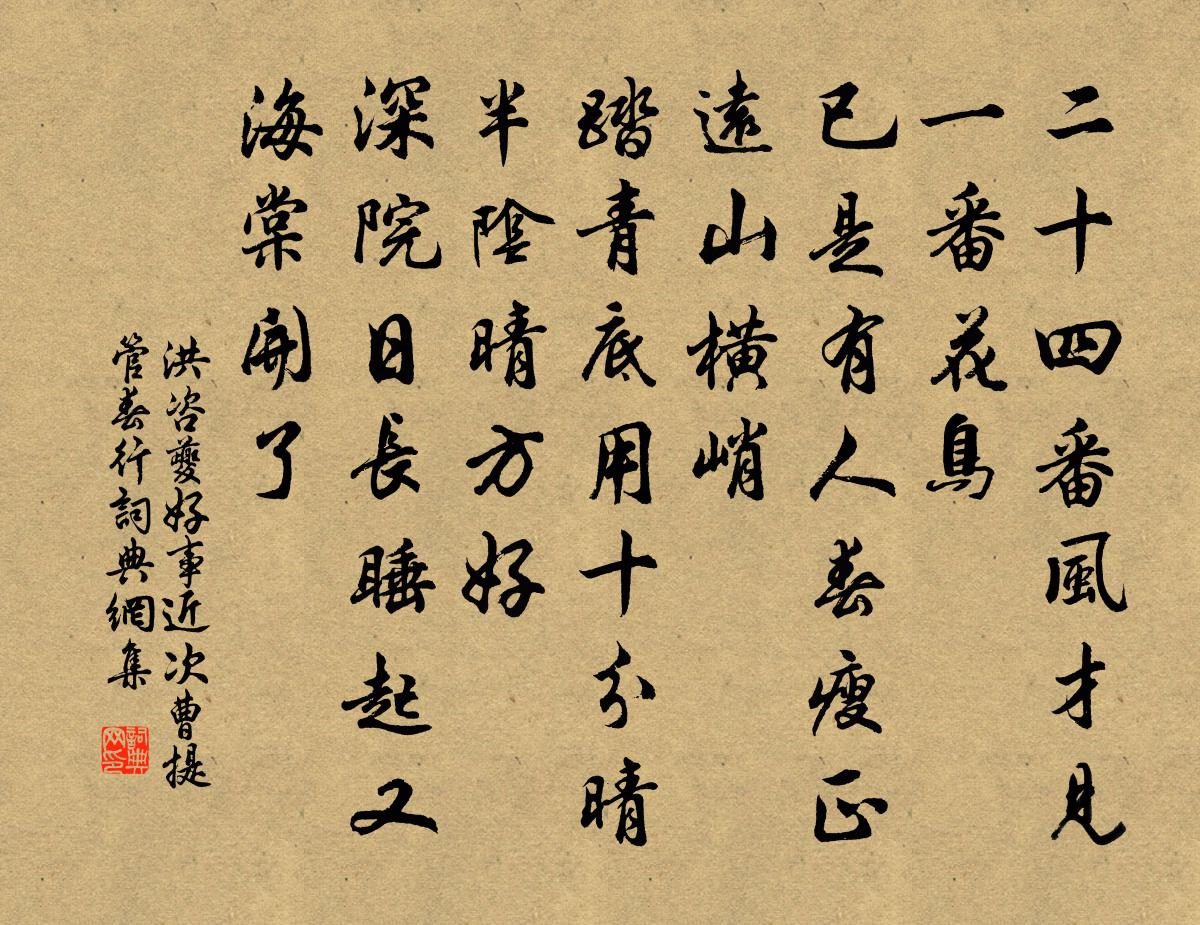 二十四番風才見
一番花鳥
已是有人春瘦正
遠山橫峭
踏青底用十分晴
半陰晴方好
深院日長睡起又
海棠開了
洪咨夔好事近次曹提
管春行詞典網集
詞典网印